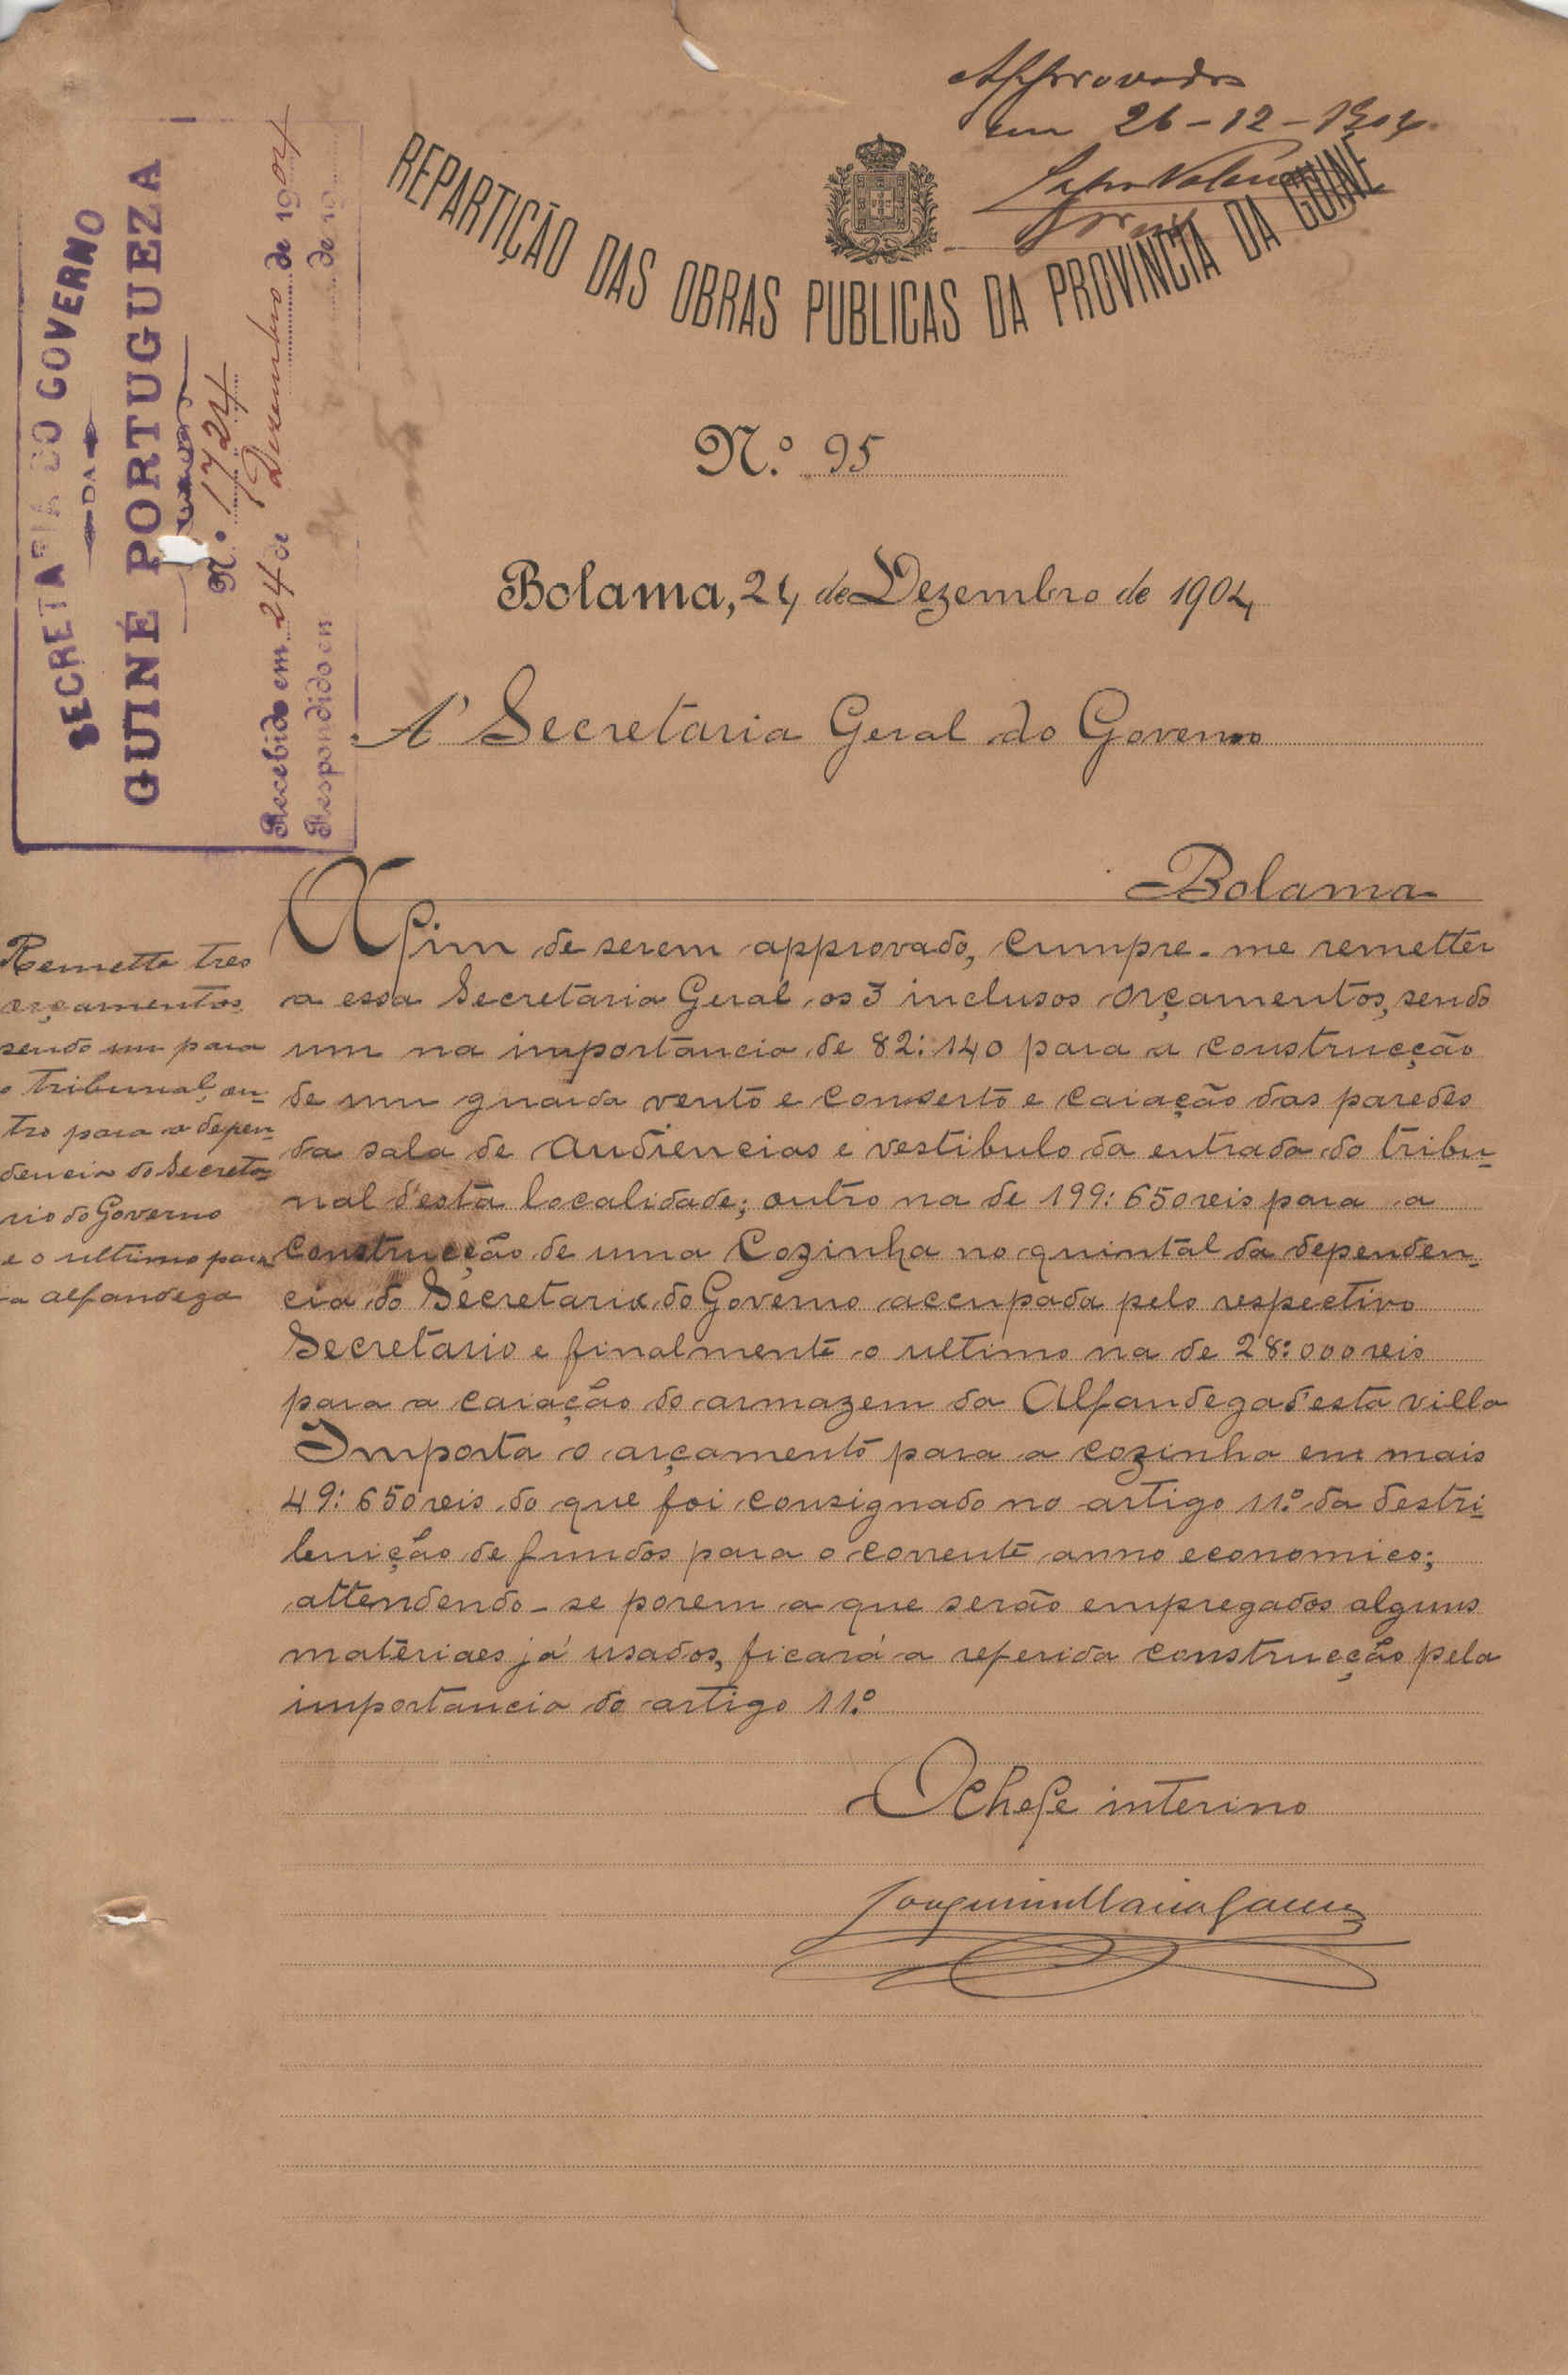 Approvado
em 26-12-1904.
REPARTIÇÃO DAS OBRAS PUBLICAS DA PROVINCIA DA GUINÉ
SECRETARIA DO GOVERNO
DA
GUINÉ PORTUGUEZA
N.º 1724
Recebido em 24 de Dezembro de 1904
Respondido em de 19
N.º 95
Bolama, 24 de Dezembro de 1904
A' Secretaria Geral do Governo
Bolama
Remette tres
orçamentos
sendo um para
o tribunal, ou-
tro para a depen
dencia do Secreta-
rio do Governo
e o ultimo para
a alfandega
Afim de serem approvado, cumpre-me remetter
a essa Secretaria Geral os 3 inclusos orçamentos, sendo
um na importancia de 82:140 para a construcção
de um guarda vento e conserto e caiação das paredes
da sala de audiencias e vestibulo da entrada do tribu-
nal d'esta localidade; outro na de 199:650 reis para a
construcção de uma cozinha no quintal da dependen-
cia do Secretaria do Governo accupada pelo respectivo
Secretario e finalmente o ultimo na de 28:000 reis
para a caiação do armazem da Alfandega d'esta villa
Importa o arçamento para a cozinha em mais
49:650 reis do que foi consignado no artigo 11.º da destri-
buição de fundos para o corrente anno economico;
attendendo-se porem a que serão empregados alguns
materiaes já usados, ficará a referida construcção pela
importancia do artigo 11.º
O Chefe interino
Joaquim Maria